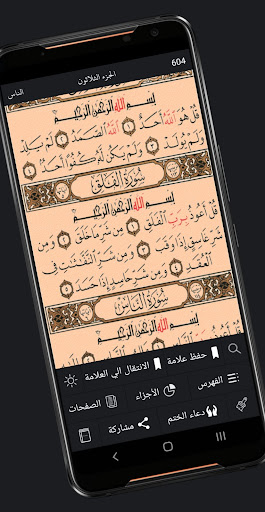 604 الجزء الثلاثون الناس
بِسْمِ ٱللَّهِ ٱلرَّحْمَٰنِ ٱلرَّحِيمِ
قُلْ هُوَ ٱللَّهُ أَحَدٌ ١ ٱللَّهُ ٱلصَّمَدُ ٢ لَمْ يَلِدْ
وَلَمْ يُولَدْ ٣ وَلَمْ يَكُن لَّهُۥ كُفُوًا أَحَدٌۢ ٤
سُورَةُ الْفَلَقِ
بِسْمِ ٱللَّهِ ٱلرَّحْمَٰنِ ٱلرَّحِيمِ
قُلْ أَعُوذُ بِرَبِّ ٱلْفَلَقِ ١ مِن شَرِّ مَا خَلَقَ ٢ وَمِن
شَرِّ غَاسِقٍ إِذَا وَقَبَ ٣ وَمِن شَرِّ ٱلنَّفَّٰثَٰتِ فِى
ٱلْعُقَدِ ٤ وَمِن شَرِّ حَاسِدٍ إِذَا حَسَدَ ٥
سُورَةُ النَّاسِ
بِسْمِ ٱللَّهِ ٱلرَّحْمَٰنِ ٱلرَّحِيمِ
حفظ علامة الانتقال الي العلامة
الفهرس الأجزاء الصفحات
دعاء الختم مشاركة